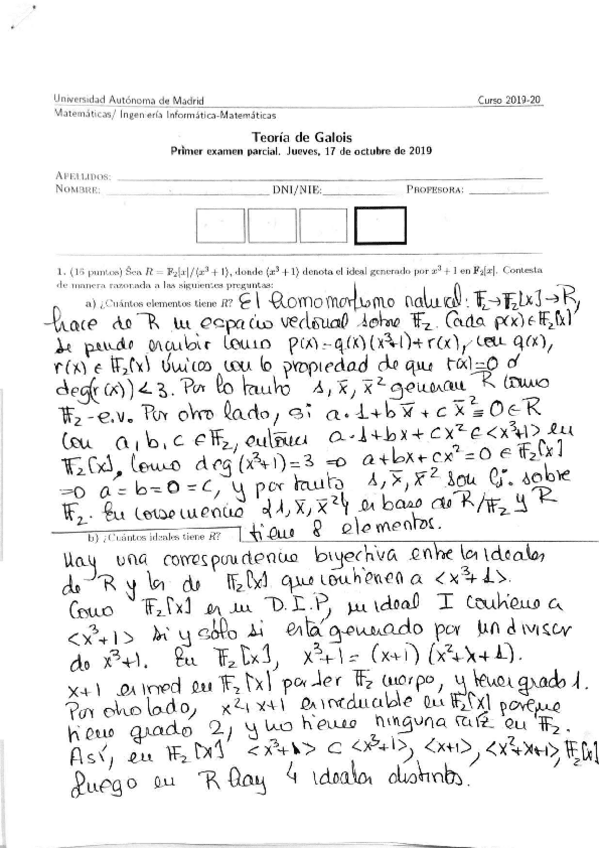 Universidad Autónoma de Madrid Curso 2019-20
Matemáticas/ Ingeniería Informática-Matemáticas
Teoría de Galois
Primer examen parcial. Jueves, 17 de octubre de 2019
APELLIDOS:
NOMBRE: DNI/NIE: PROFESORA:
1. (16 puntos) Sea R = F₂[x]/⟨x³ + 1⟩, donde ⟨x³ + 1⟩ denota el ideal generado por x³ + 1 en F₂[x]. Contesta
de manera razonada a las siguientes preguntas:
a) ¿Cuántos elementos tiene R? El homomorfismo natural: F₂→F₂[x]→R,
hace de R un espacio vectorial sobre F₂. Cada p(x)∈F₂[x]
se puede escribir como p(x)=q(x)(x³+1)+r(x), con q(x),
r(x) ∈ F₂[x] únicos con la propiedad de que r(x)=0 ó
deg(r(x))<3. Por lo tanto 1, x̄, x̄² generan R como
F₂-e.v. Por otro lado, si a·1+bx̄+cx̄²=0∈R
con a, b, c ∈ F₂, entonces a·1+bx+cx²∈<x³+1> en
F₂[x]. Como deg(x³+1)=3 ⇒ a+bx+cx²=0∈F₂[x]
⇒ a=b=0=c, y por tanto 1, x̄, x̄² son l.i. sobre
F₂. En consecuencia {1, x̄, x̄²} es base de R/F₂ y R
tiene 8 elementos.
b) ¿Cuántos ideales tiene R?
Hay una correspondencia biyectiva entre los ideales
de R y los de F₂[x] que contienen a <x³+1>.
Como F₂[x] es un D.I.P, un ideal I contiene a
<x³+1> si y sólo si está generado por un divisor
de x³+1. En F₂[x], x³+1=(x+1)(x²+x+1).
x+1 es irred en F₂[x] por ser F₂ cuerpo, y tener grado 1.
Por otro lado, x²+x+1 es irreducible en F₂[x] porque
tiene grado 2, y no tiene ninguna raíz en F₂.
Así, en F₂[x] <x³+1> ⊂ <x³+1>, <x+1>, <x²+x+1>, F₂[x]
Luego en R hay 4 ideales distintos.